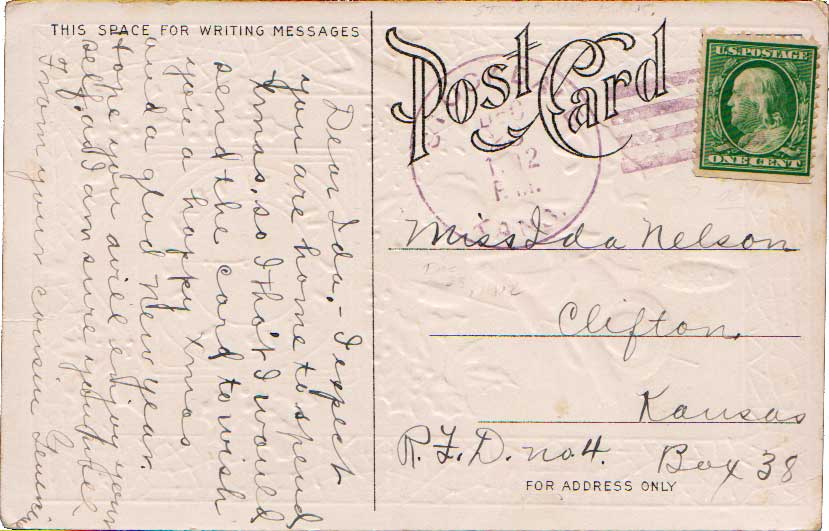 THIS SPACE FOR WRITING MESSAGES
Post Card
U.S. POSTAGE
ONE CENT
DEC
1912
P.M.
Dear Ida, - I expect
you are home to spend
Xmas, so I tho't I would
send the card to wish
you a happy Xmas
and a glad New Year.
Hope you will enjoy your
self, and I am sure you will.
From your cousin
Miss Ida Nelson
Clifton,
Kansas
R.F.D. no 4. Box 38
FOR ADDRESS ONLY